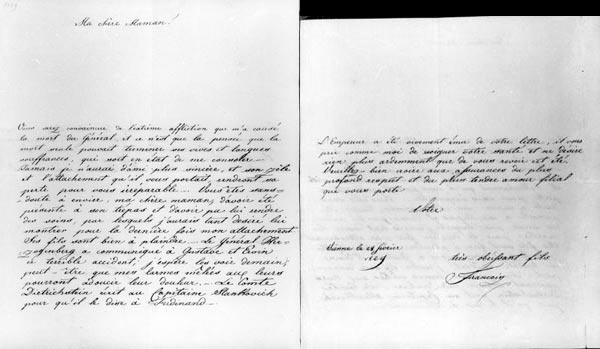 Ma chère Maman!
Vous serez convaincue de l'extrême affliction que m'a causé
la mort du Général, et ce n'est que la pensée que la
mort seule pouvait terminer ses vives et longues
souffrances, qui soit en état de me consoler.—
Jamais je n'aurai d'ame plus sincère, et son zèle
et l'attachement qu'il vous portait, rendront sa
perte pour vous irréparable.— Vous êtes sans-
doute à envier, ma chère maman, d'avoir été
présente à son trépas et d'avoir pu lui rendre
des soins, par lesquels j'aurais tant désiré lui
montrer pour la dernière fois mon attachement
Ses fils sont bien à plaindre.— Le Général Her-
zogenberg a communiqué à Gustave et Erwin
ce terrible accident; j'espère les voir demain;
peut-être que mes larmes mêlées aux leurs
pourront adoucir leur douleur.— Le Comte
Dietrichstein écrit au Capitaine
pour qu'il le dise à Ferdinand.—
L'Empereur a été vivement ému de votre lettre, il vous
prie comme moi de soigner votre santé et ne désire
rien plus ardemment que de vous revoir cet été.
Veuillez bien croire aux assurances du plus
profond respect et du plus tendre amour filial
que vous porte
Votre
Vienne le 28 février
1829
très obéissant fils
François